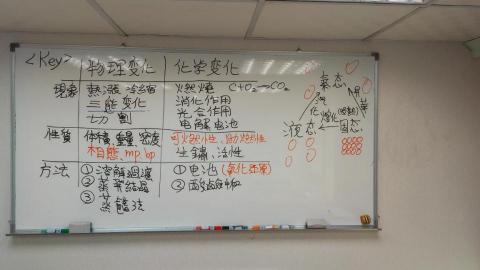 <Key>
物理变化
化学变化
現象
熱漲冷縮
三態变化
切割
燃燒 C+O₂→CO₂
消化作用
光合作用
电解电池
性質
体積,重量,密度
相態, mp, bp
可燃性,助燃性
生鏽,活性
方法
①溶解過濾
②蒸発結晶
③蒸餾法
①电池(氧化还原)
②酸鹼中和
氣态
汽化
昇華
熔化(吸熱)
液态
固态